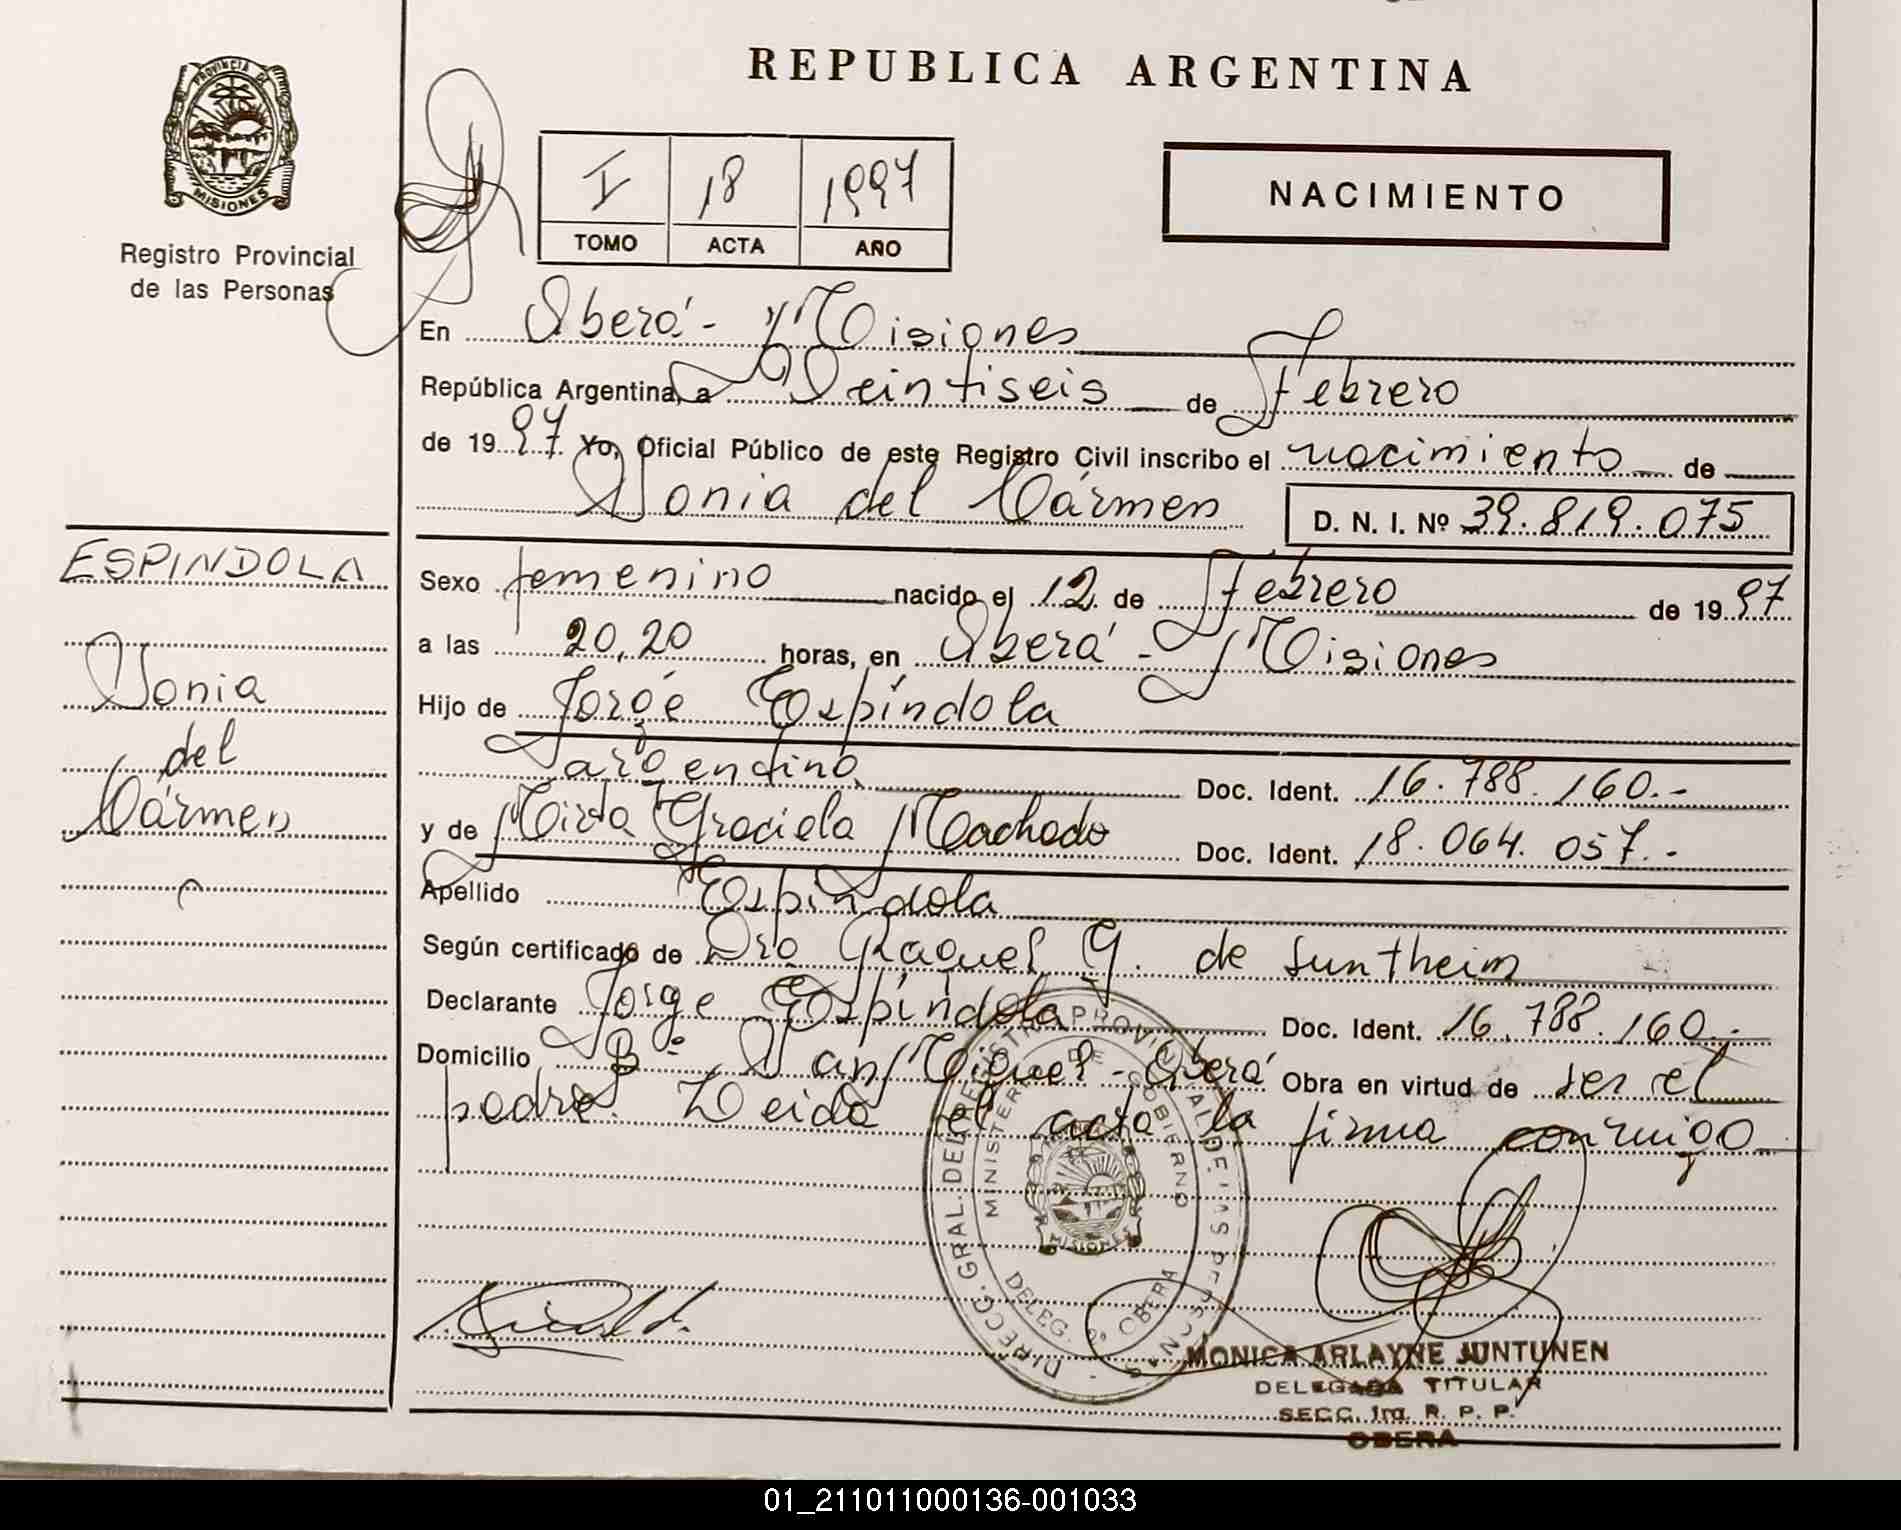 REPUBLICA ARGENTINA
PROVINCIA DE
MISIONES
Registro Provincial
de las Personas
I 18 1997
TOMO ACTA AÑO
NACIMIENTO
En Oberá - Misiones
República Argentina, a Veintiseis de Febrero
de 1997 Yo, Oficial Público de este Registro Civil inscribo el nacimiento de
Sonia del Cármen D. N. I. Nº 39.819.075
ESPINDOLA
Sonia
del
Cármen
Sexo femenino nacido el 12 de Febrero de 1997
a las 20,20 horas, en Oberá - Misiones
Hijo de Jorge Espíndola
argentino Doc. Ident. 16.788.160.-
y de Mirta Graciela Machado Doc. Ident. 18.064.057.-
Apellido Espíndola
Según certificado de Dra Raquel G. de Suntheim
Declarante Jorge Espíndola Doc. Ident. 16.788.160.-
Domicilio Bº San Miguel - Oberá Obra en virtud de ser el
padre. Leida el acta la firma conmigo
DIRECC. GRAL. DEL REGISTRO PROVINCIAL DE LAS PERSONAS
MINISTERIO DE GOBIERNO
MISIONES
DELEG. 2ª OBERA
MONICA ARLAYNE JUNTUNEN
DELEGADA TITULAR
SECC. 1ra. R. P. P.
OBERA
01_211011000136-001033